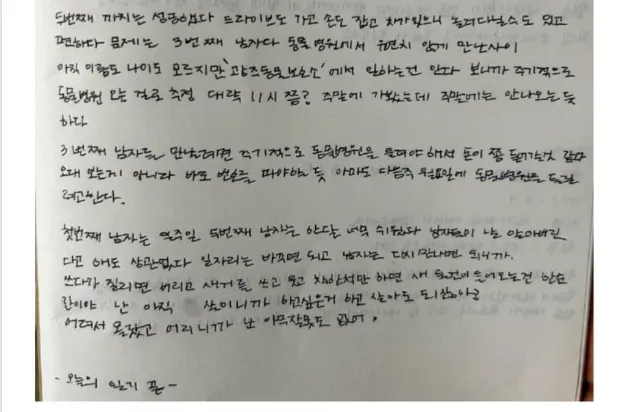 두번째 까지는 성공했다 드라이브도 가고 손도 잡고 차가 있으니 놀러다닐수도 있고
편하다 문제는 3번째 남자다 동물병원에서 우연치 않게 만난사이
아직 이름도 나이도 모르지만 '광주동물보호소'에서 일하는건 안다 보니까 주기적으로
동물병원 오는 걸로 추정 대략 11시 쯤? 주말에 가봤는데 주말에는 안나오는 듯
하다
3번째 남자를 만날려면 주기적으로 동물병원을 들려야 해서 돈이 쫌 들어가는것 같다
오래 보는게 아니라 바로 번호를 따야할 듯 아마도 다음주 월요일에 동물병원을 들를
려고한다.
첫번째 남자는 일주일 두번째 남자는 한달 너무 쉬웠다 남자들이 나를
다고 해도 상관없다 일자리는 바꾸면 되고 남자는 다시 만나면 되니까.
쓰다가 질리면 버리고 새거를 쓰고 웃고 착한척만 하면 새 물건이 들어오는건
난 아직 살이니까 하고싶은거 하고 살아도 되잖아?
어려서 몰랐고 어리니까 난 아무잘못도 없어.
- 오늘의 일기 끝 -